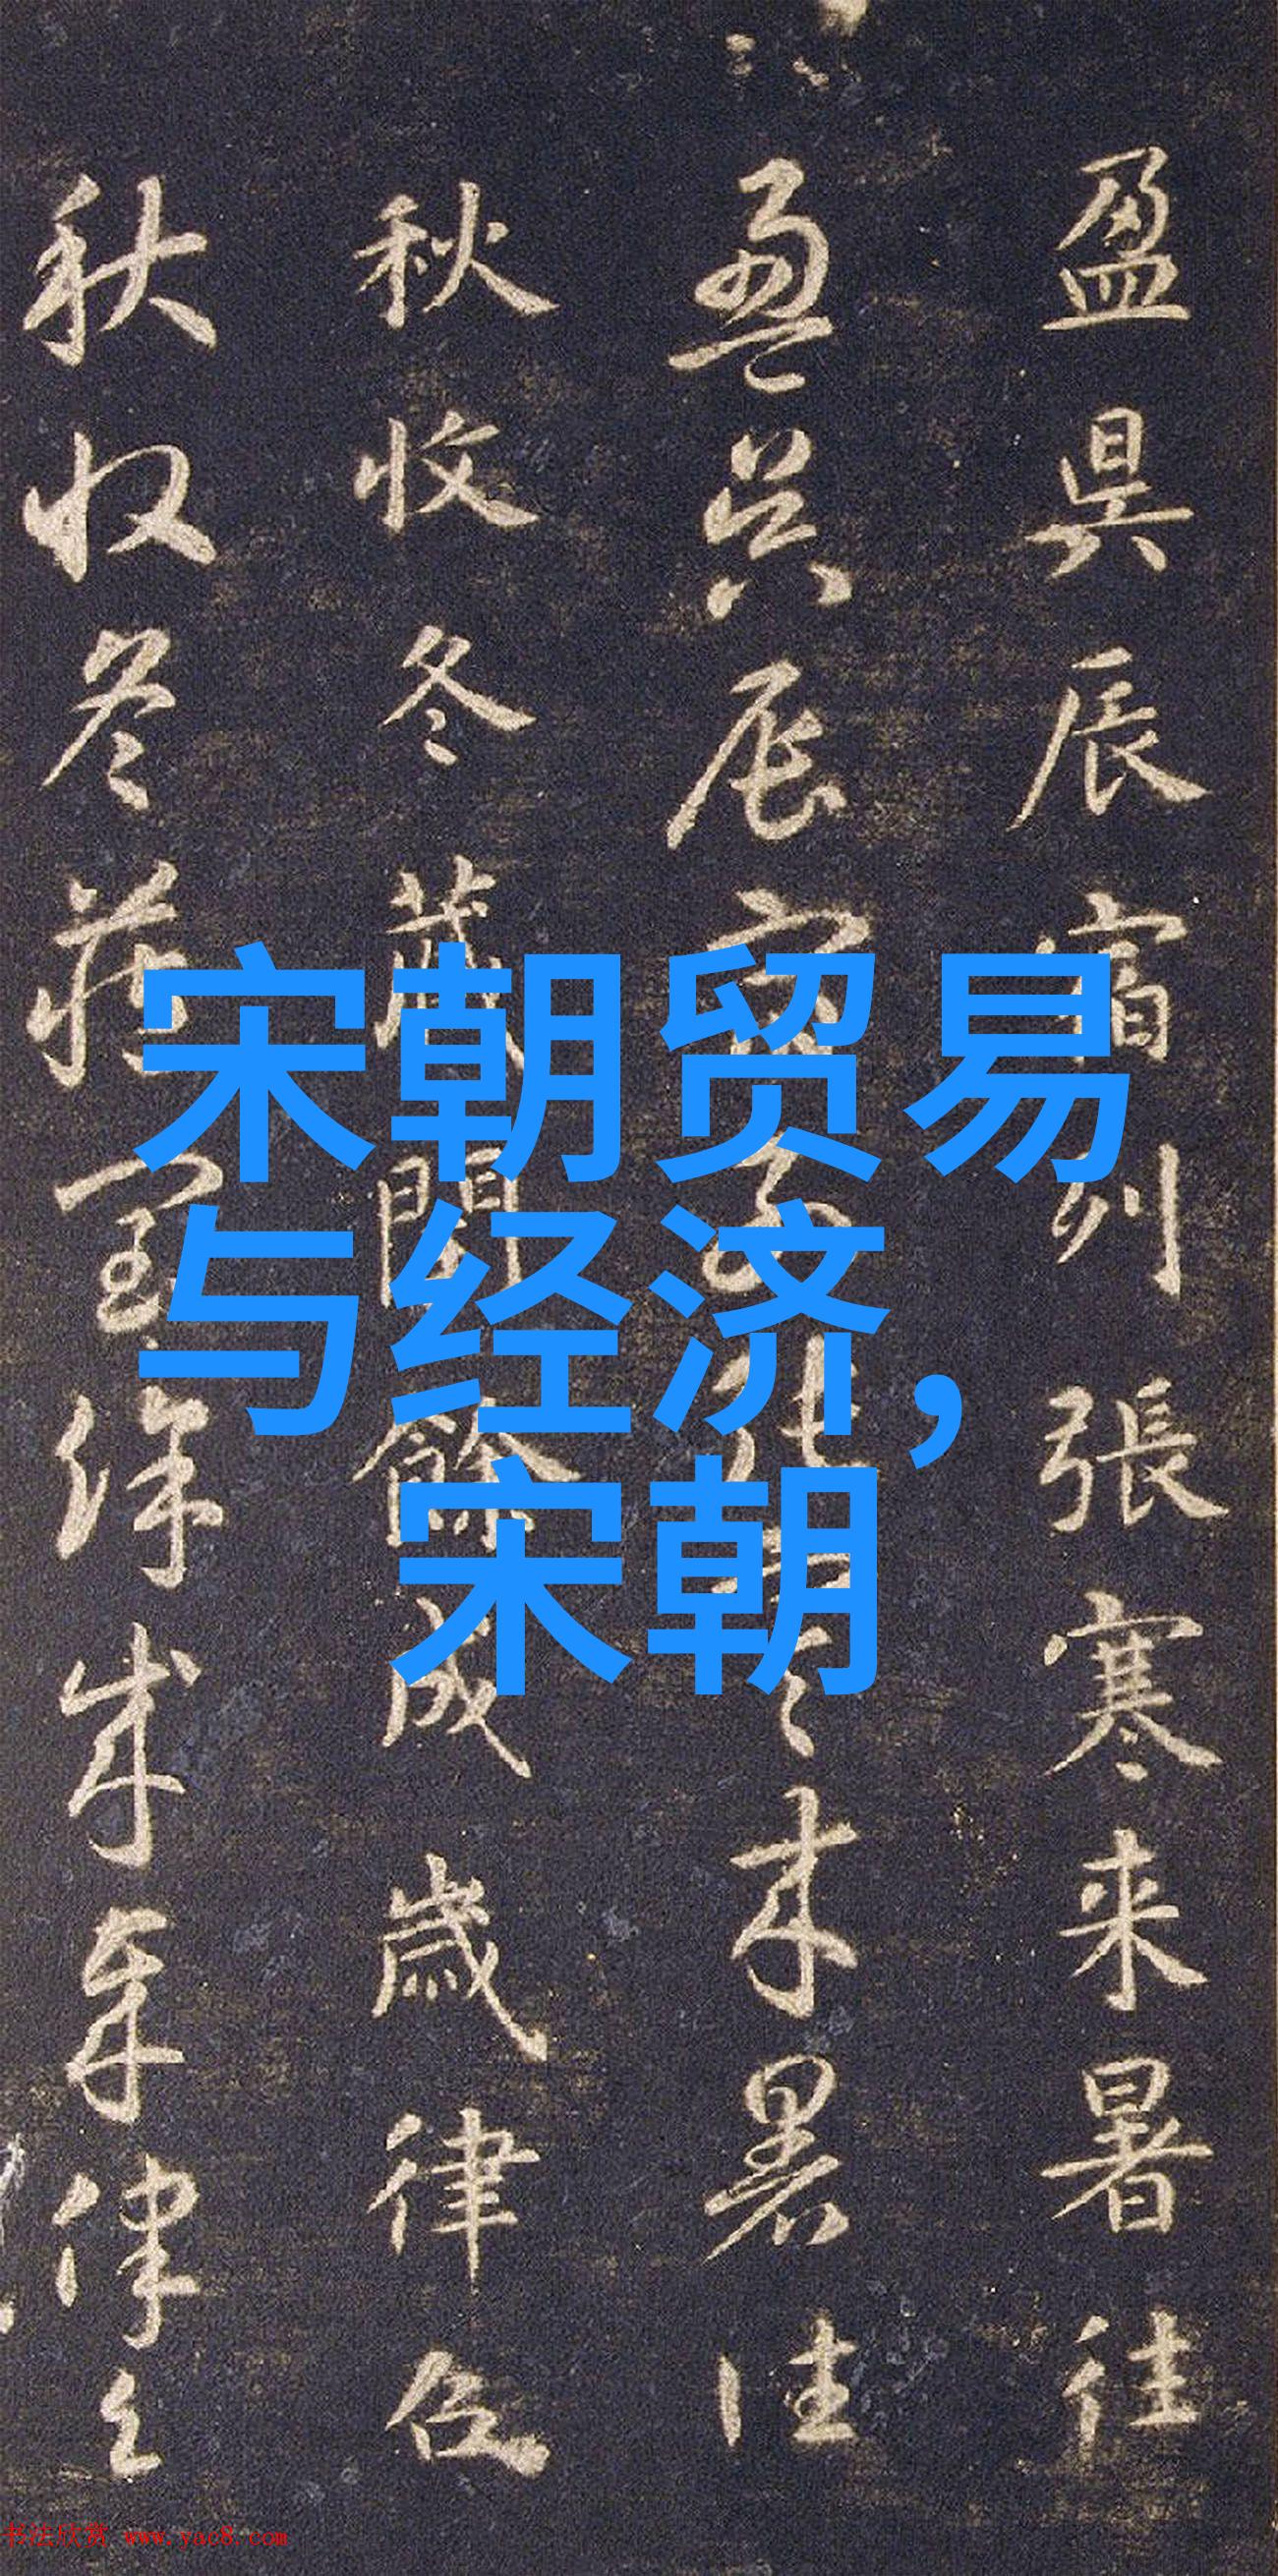 盈昃辰宿列張寒来暑往
盈昃辰宿列張寒来暑往
秋收冬藏閏餘成歲律召
秋收冬藏閏餘成歲律召
宋朝贸易
与经济，
宋朝
书法欣赏 www.yac8.com